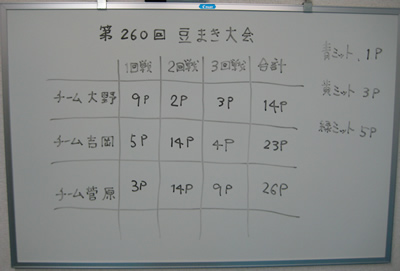 第260回 豆まき大会
1回戦 2回戦 3回戦 合計
チーム大野 9P 2P 3P 14P
チーム吉岡 5P 14P 4P 23P
チーム菅原 3P 14P 9P 26P
ミット 1P
黄ミット 3P
緑ミット 5P